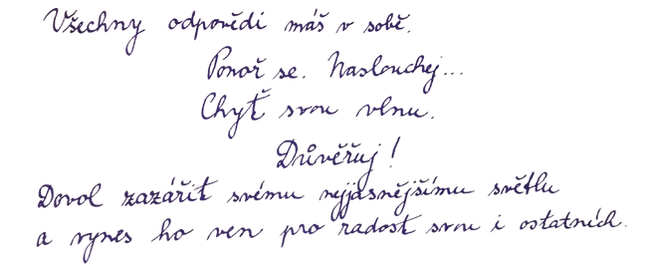 Všechny odpovědi máš v sobě.
Ponoř se. Naslouchej...
Chyť svou vlnu.
Důvěřuj!
Dovol zazářit svému nejjasnějšímu světlu
a vynes ho ven pro radost svou i ostatních.